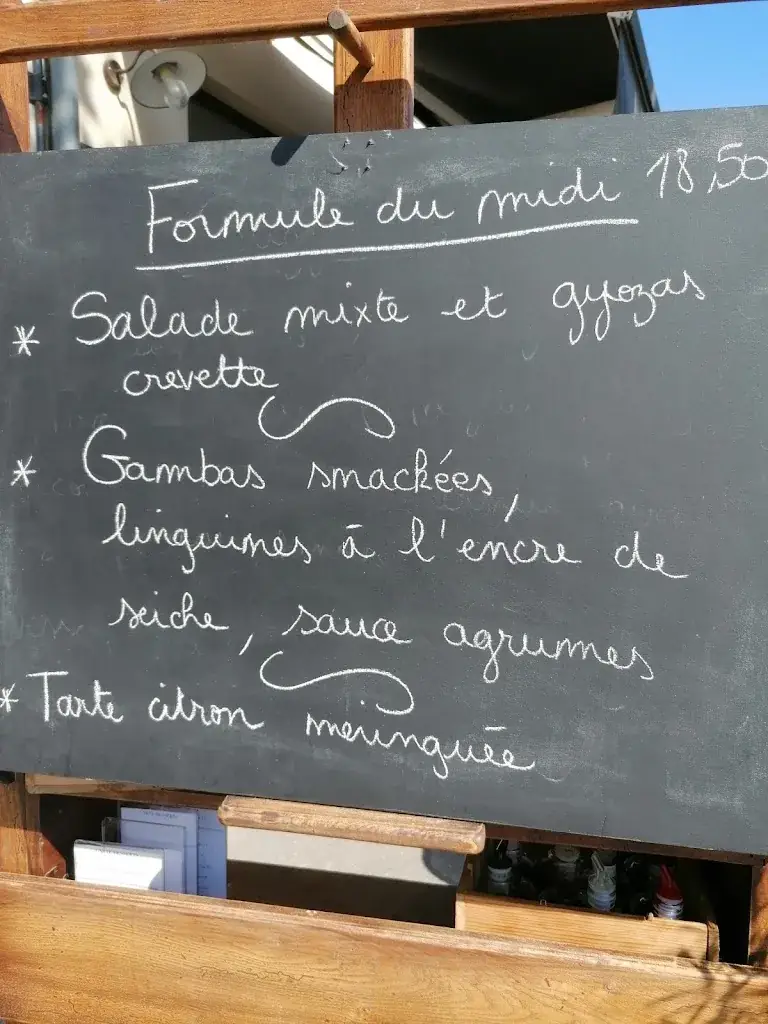 Formule du midi 18,50
* Salade mixte et gyozas
crevette
* Gambas smackées,
linguines à l'encre de
seiche, sauce agrumes
* Tarte citron meringuée